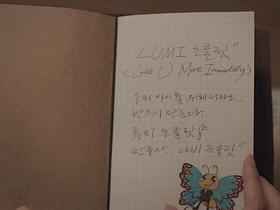 LUMI 초콜릿"
<Love U More Immortally>
우리 아이를 위해서라도...
반드시 만든다
루미 초콜릿
나비 초콜릿"